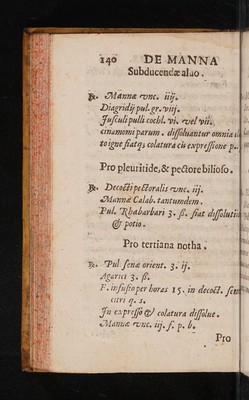 140 DE MANNA
Subducendæ aluo.
℞. Mannæ vnc. iij.
Diagridij pul. gr. viij.
Jusculi pulli cochl. vi. vel vii.
cinamomi parum. dissoluantur omnia
to igne fiatq; colatura cũ expressione p.
Pro pleuritide, & pectore bilioso.
℞. Decocti pectoralis vnc. iij.
Mannæ Calab. tantumdem.
Pul. Rhabarbari ʒ. ß. fiat dissolutio
& potio.
Pro tertiana notha.
℞. Pul senæ orient. ʒ. ij.
Agarici ʒ. ß.
F. infusio per horas 15. in decoct. sem
citri q. s.
In expresso & colatura dissolue.
Mannæ vnc. iij. f. p. b.
Pro